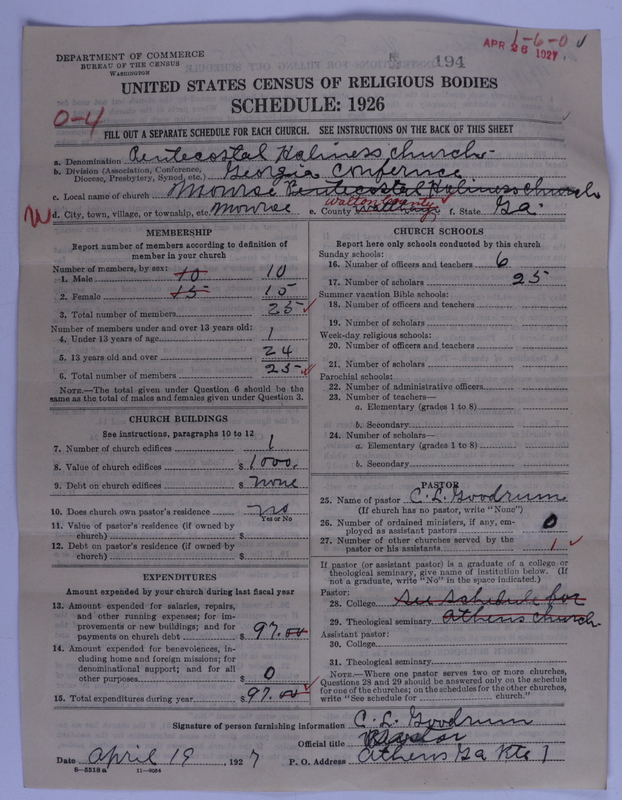 1-6-0 ✓
APR 26 1927
194
DEPARTMENT OF COMMERCE
BUREAU OF THE CENSUS
WASHINGTON
UNITED STATES CENSUS OF RELIGIOUS BODIES
SCHEDULE: 1926
0-4
FILL OUT A SEPARATE SCHEDULE FOR EACH CHURCH. SEE INSTRUCTIONS ON THE BACK OF THIS SHEET
a. Denomination Pentecostal Holiness church
b. Division (Association, Conference, Diocese, Presbytery, Synod, etc.) Georgia Confernce
c. Local name of church Monroe Pentecostal Holiness church
W d. City, town, village, or township, etc. Monroe e. County Walton County f. State Ga.
MEMBERSHIP
Report number of members according to definition of
member in your church
Number of members, by sex:
1. Male 10 10
2. Female 15 15
3. Total number of members 25 ✓
Number of members under and over 13 years old:
4. Under 13 years of age 1
5. 13 years old and over 24
6. Total number of members 25 ✓
NOTE.—The total given under Question 6 should be the
same as the total of males and females given under Question 3.
CHURCH BUILDINGS
See instructions, paragraphs 10 to 12
7. Number of church edifices 1
8. Value of church edifices $ 1000.
9. Debt on church edifices $ none
10. Does church own pastor's residence no
Yes or No
11. Value of pastor's residence (if owned by
church) $
12. Debt on pastor's residence (if owned by
church) $
EXPENDITURES
Amount expended by your church during last fiscal year
13. Amount expended for salaries, repairs,
and other running expenses; for im-
provements or new buildings; and for
payments on church debt $ 97.00
14. Amount expended for benevolences, in-
cluding home and foreign missions; for
denominational support; and for all
other purposes $ 0
15. Total expenditures during year $ 97.00 ✓
CHURCH SCHOOLS
Report here only schools conducted by this church
Sunday schools:
16. Number of officers and teachers 6
17. Number of scholars 25
Summer vacation Bible schools:
18. Number of officers and teachers
19. Number of scholars
Week-day religious schools:
20. Number of officers and teachers
21. Number of scholars
Parochial schools:
22. Number of administrative officers
23. Number of teachers—
a. Elementary (grades 1 to 8)
b. Secondary
24. Number of scholars—
a. Elementary (grades 1 to 8)
b. Secondary
PASTOR
25. Name of pastor C. L. Goodrum
(If church has no pastor, write "None")
26. Number of ordained ministers, if any, em-
ployed as assistant pastors 0
27. Number of other churches served by the
pastor or his assistants 1 ✓
If pastor (or assistant pastor) is a graduate of a college or
theological seminary, give name of institution below. (If
not a graduate, write "No" in the space indicated.)
Pastor:
28. College See Schedule for
29. Theological seminary Athens church
Assistant pastor:
30. College
31. Theological seminary
NOTE.—Where one pastor serves two or more churches,
Questions 28 and 29 should be answered only on the schedule
for one of the churches; on the schedules for the other churches,
write "See schedule for ........ church."
Signature of person furnishing information C. L. Goodrum
Official title Pastor
Date April 19, 1927 P. O. Address Athens Ga Rte 1
8-5518a 11-9054